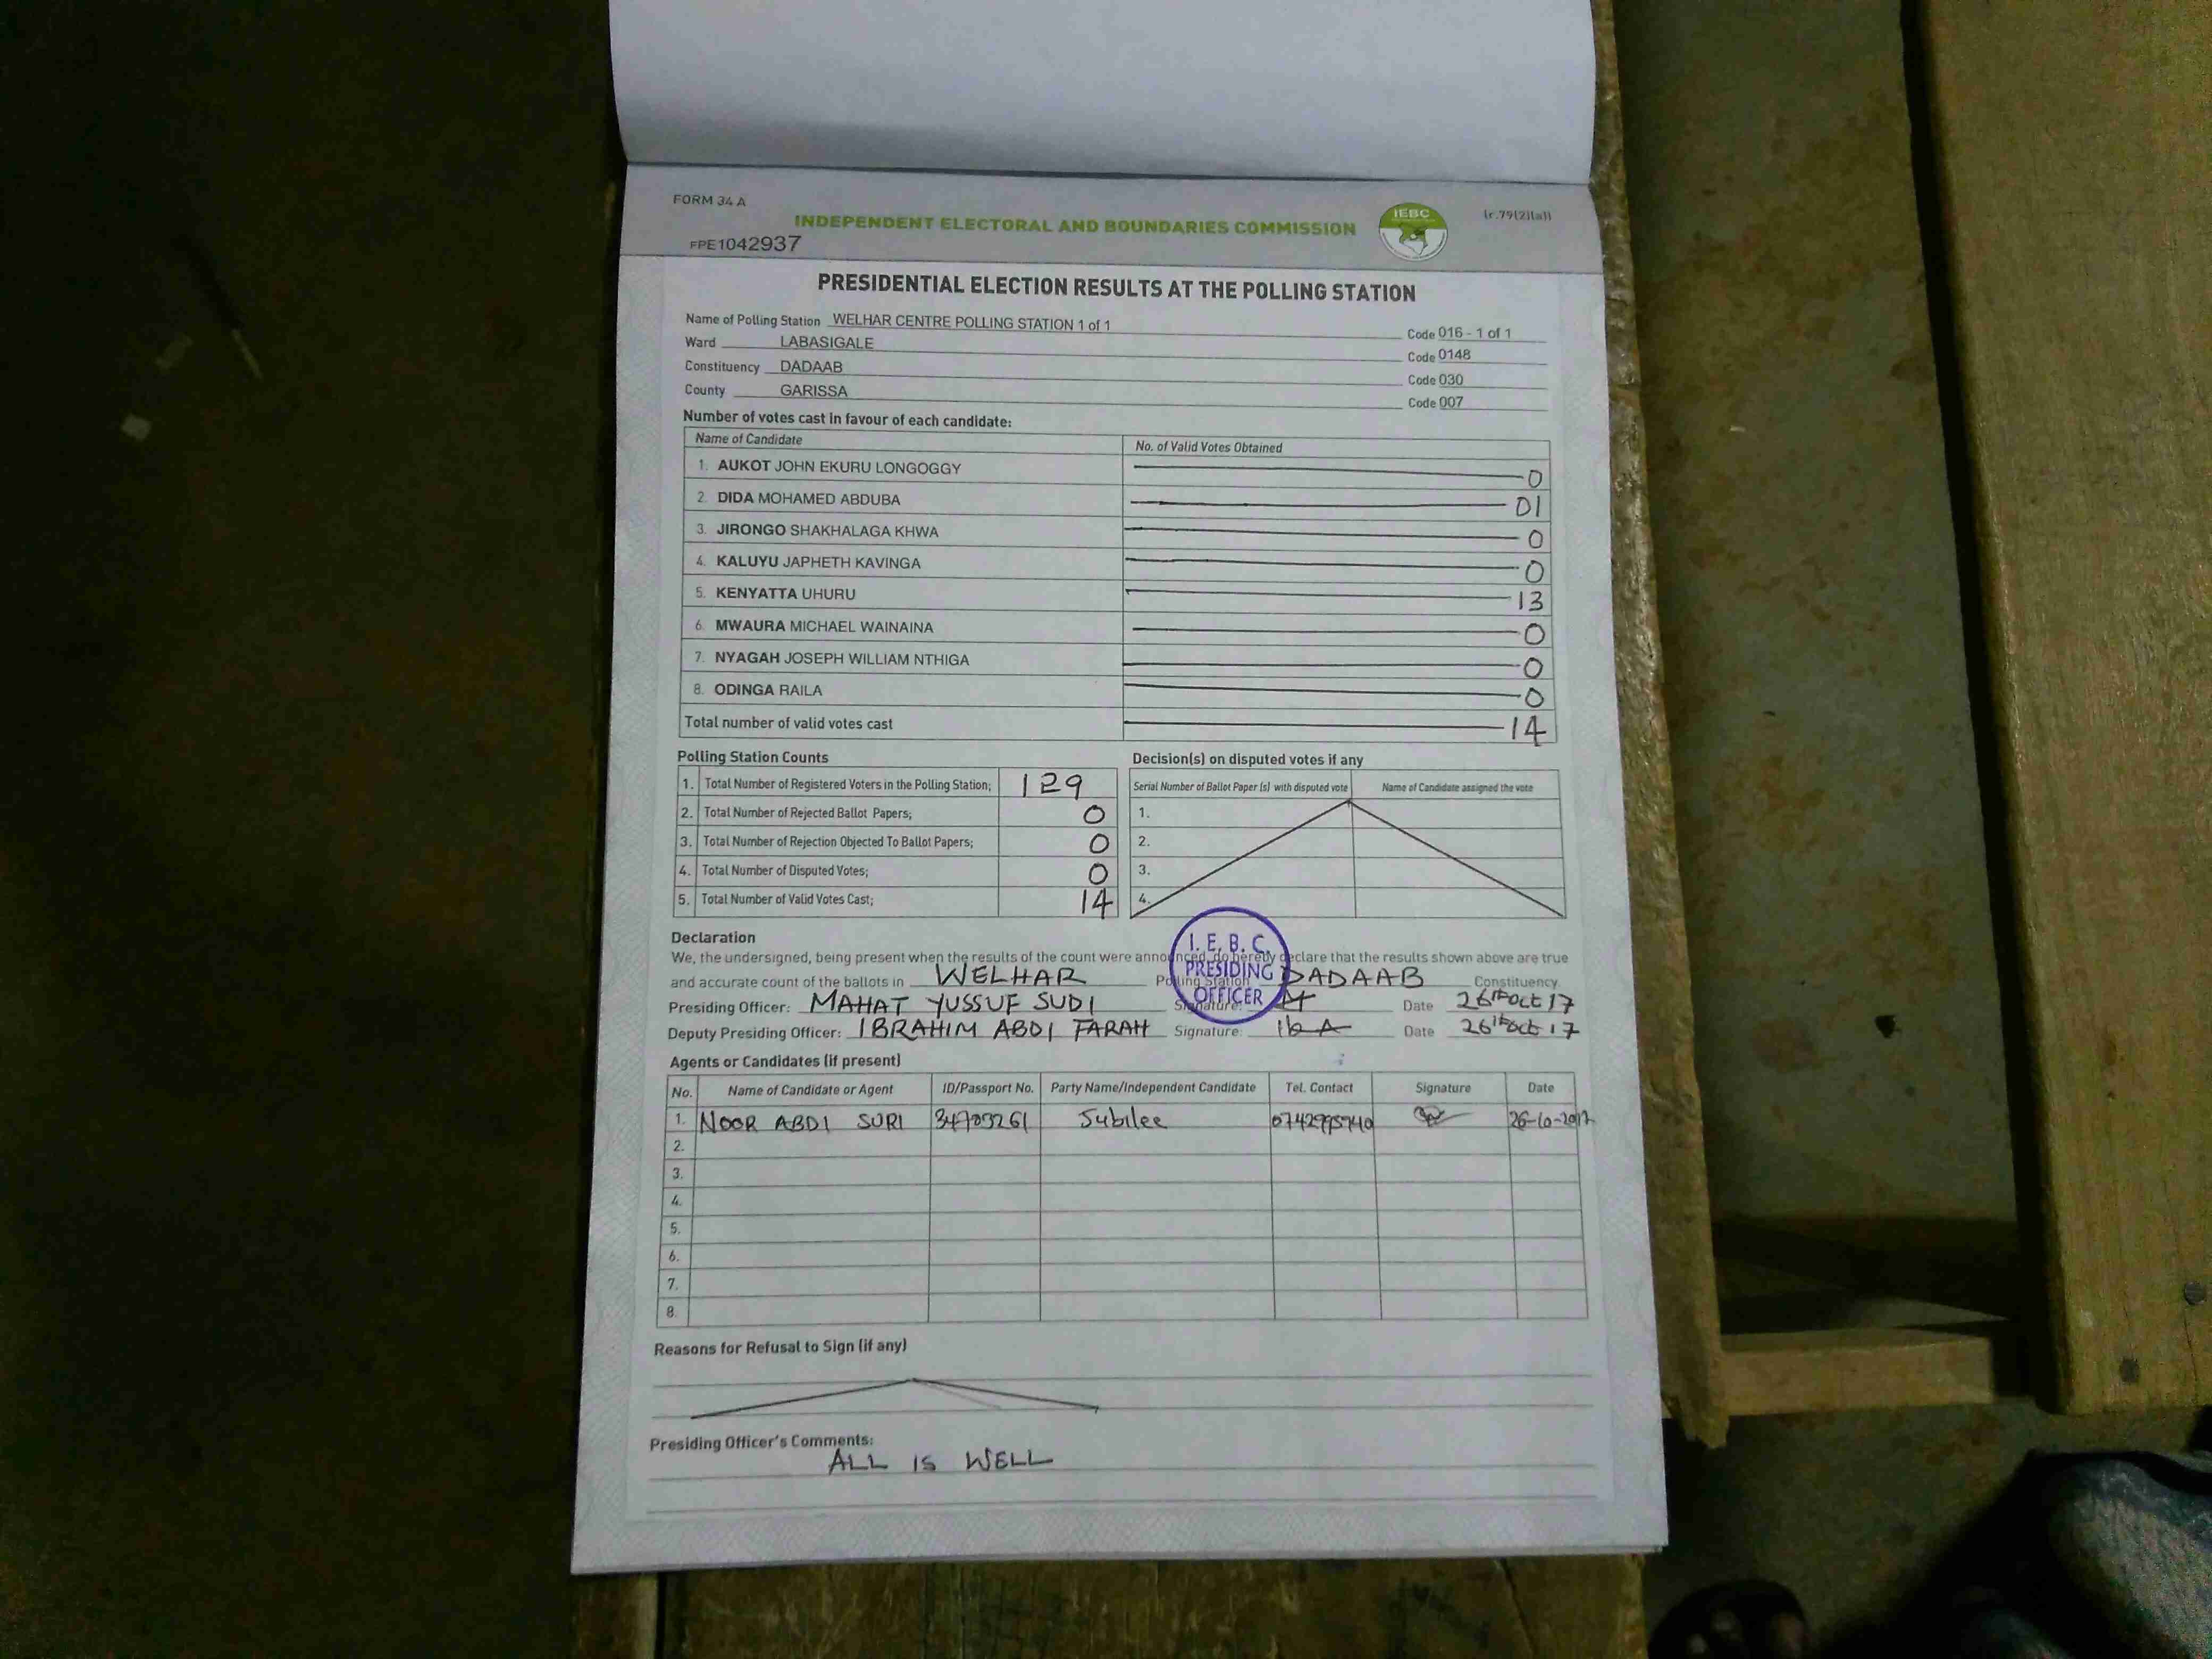 FORM 34 A
INDEPENDENT ELECTORAL AND BOUNDARIES COMMISSION
IEBC
(r.79(2)(a))
FPE1042937
PRESIDENTIAL ELECTION RESULTS AT THE POLLING STATION
Name of Polling Station WELHAR CENTRE POLLING STATION 1 of 1 Code 016 - 1 of 1
Ward LABASIGALE Code 0148
Constituency DADAAB Code 030
County GARISSA Code 007
Number of votes cast in favour of each candidate:
Name of Candidate No. of Valid Votes Obtained
1. AUKOT JOHN EKURU LONGOGGY 0
2. DIDA MOHAMED ABDUBA 01
3. JIRONGO SHAKHALAGA KHWA 0
4. KALUYU JAPHETH KAVINGA 0
5. KENYATTA UHURU 13
6. MWAURA MICHAEL WAINAINA 0
7. NYAGAH JOSEPH WILLIAM NTHIGA 0
8. ODINGA RAILA 0
Total number of valid votes cast 14
Polling Station Counts
1. Total Number of Registered Voters in the Polling Station; 129
2. Total Number of Rejected Ballot Papers; 0
3. Total Number of Rejection Objected To Ballot Papers; 0
4. Total Number of Disputed Votes; 0
5. Total Number of Valid Votes Cast; 14
Decision(s) on disputed votes if any
Serial Number of Ballot Paper (s) with disputed vote Name of Candidate assigned the vote
1.
2.
3.
4.
Declaration
We, the undersigned, being present when the results of the count were announced, do hereby declare that the results shown above are true
and accurate count of the ballots in WELHAR Polling Station DADAAB Constituency
I. E. B. C.
PRESIDING
OFFICER
Presiding Officer: MAHAT YUSSUF SUDI Signature: Date 26th Oct 17
Deputy Presiding Officer: IBRAHIM ABDI FARAH Signature: Date 26th Oct 17
Agents or Candidates (if present)
No. Name of Candidate or Agent ID/Passport No. Party Name/Independent Candidate Tel. Contact Signature Date
1. NOOR ABDI SURI Jubilee 26-10-2017
2.
3.
4.
5.
6.
7.
8.
Reasons for Refusal to Sign (if any)
Presiding Officer's Comments:
ALL IS WELL